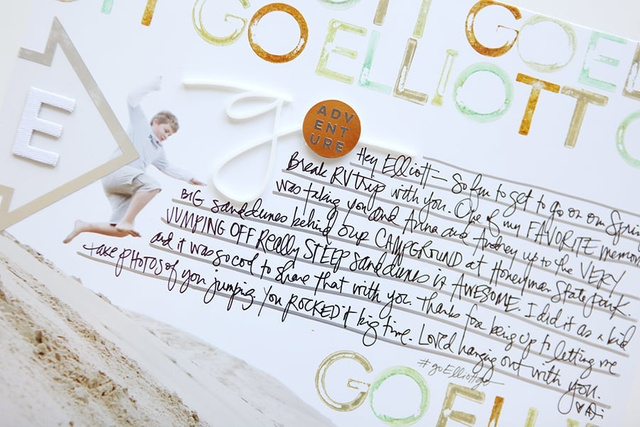 IT GOELLIOTT GO
GOELLIOTT
GOEL
E
go
ADV
ENT
URE
Hey Elliott— So fun to get to go on our Spring
Break RV trip with you. One of my FAVORITE memories
was taking you and Anna and Audrey up to the VERY
BIG sand dunes behind our CAMPGROUND at Honeyman State Park.
JUMPING OFF REALLY STEEP sand dunes is AWESOME. I did it as a kid
and it was so cool to share that with you. Thanks for being up to letting me
take PHOTOS of you jumping. You ROCKED it big time. Loved hanging out with you.
#goElliottgo
GOELLI